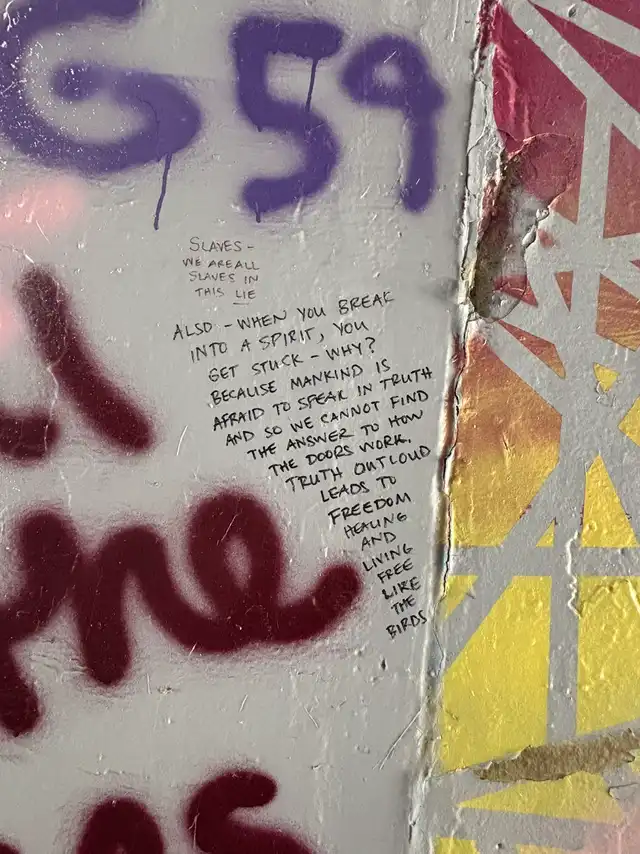 G59
SLAVES -
WE ARE ALL
SLAVES IN
THIS LIE
ALSO - WHEN YOU BREAK
INTO A SPIRIT, YOU
GET STUCK - WHY?
BECAUSE MANKIND IS
AFRAID TO SPEAK IN TRUTH
AND SO WE CANNOT FIND
THE ANSWER TO HOW
THE DOORS WORK.
TRUTH OUTLOUD
LEADS TO
FREEDOM
HEALING
AND
LIVING
FREE
LIKE
THE
BIRDS